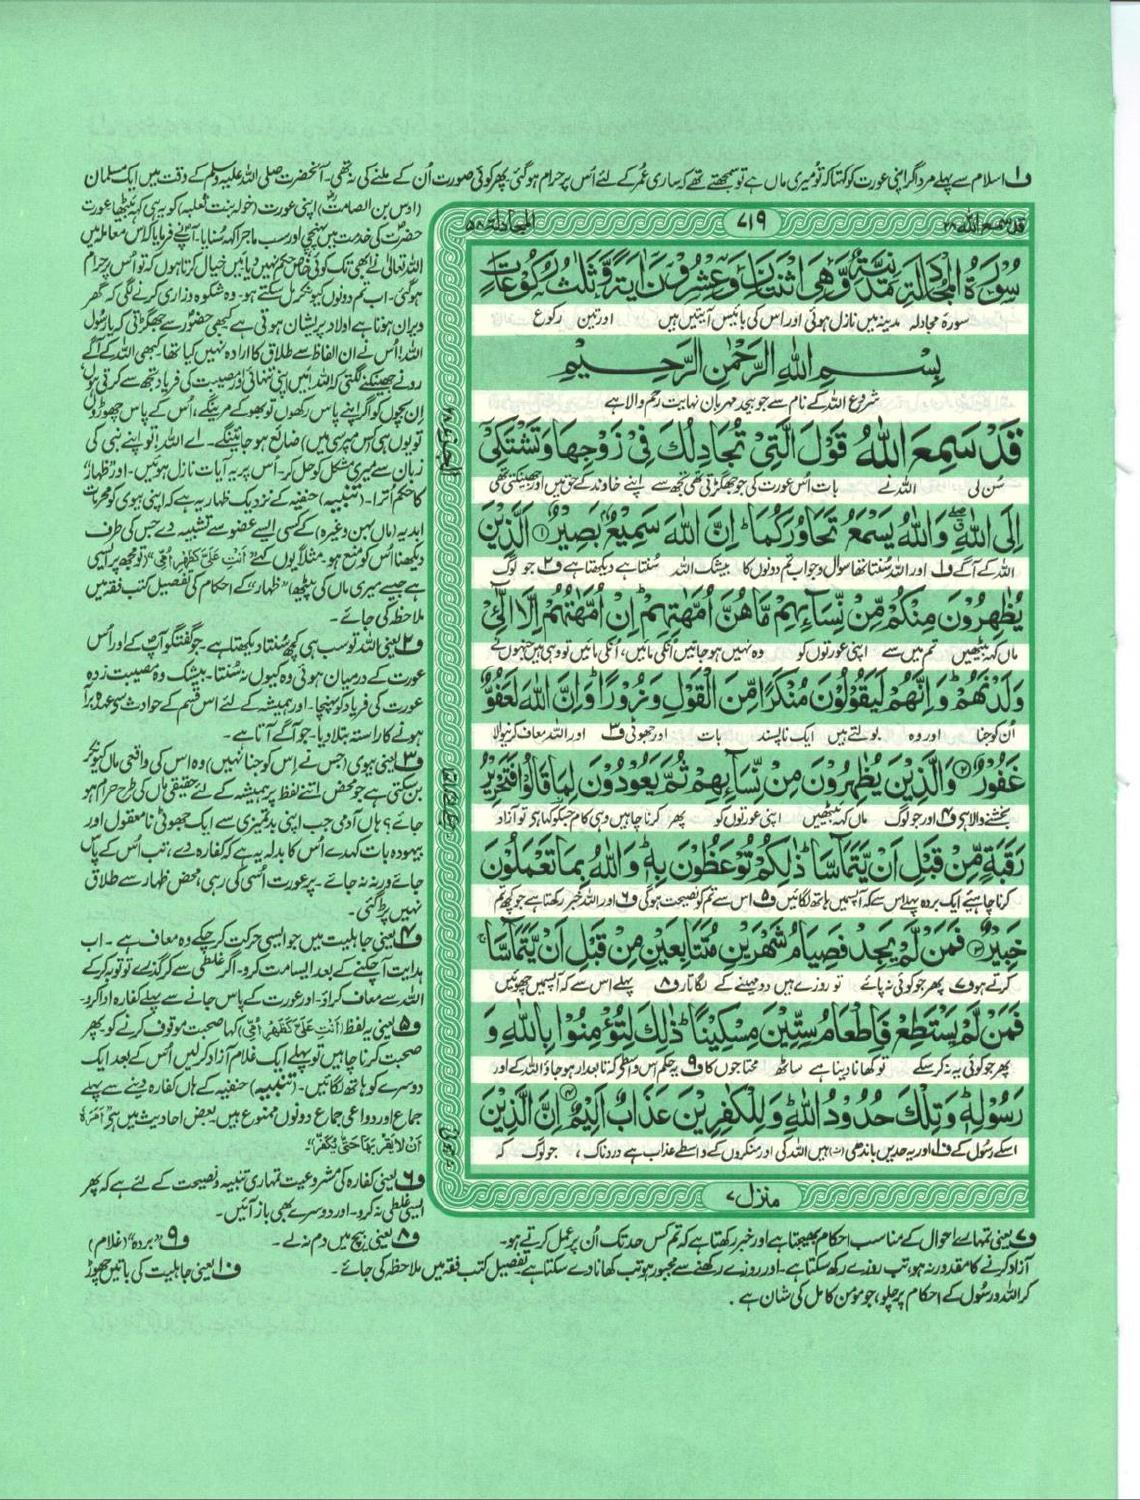 ف۱ اسلام سے پہلے مرد اگر اپنی عورت کو کہتا کہ تو میری ماں ہے تو سمجھتے تھے کہ ساری عمر کے لئے اُس پر حرام ہوگئی۔ پھر کوئی صورت اُن کے ملنے کی نہ تھی۔ آنحضرت صلی اللہ علیہ وسلم کے وقت میں ایک مسلمان
قد سمع اللہ ۲۸
۷۱۹
المجادلة ۵۸
سُوْرَةُ الْمُجَادَلَةِ مَدَنِيَّةٌ وَّهِيَ اثْنَتَانِ وَعِشْرُوْنَ اٰيَةً وَّثَلٰثُ رُكُوْعَاتٍ
سورۂ مجادلہ مدینہ میں نازل ہوئی اور اس کی بائیس آیتیں ہیں اور تین رکوع
بِسْمِ اللّٰهِ الرَّحْمٰنِ الرَّحِيْمِ
شروع اللہ کے نام سے جو بیحد مہربان نہایت رحم والا ہے
قَدْ سَمِعَ اللّٰهُ قَوْلَ الَّتِيْ تُجَادِلُكَ فِيْ زَوْجِهَا وَتَشْتَكِيْٓ
سُن لی اللہ نے بات اُس عورت کی جو جھگڑتی تھی تجھ سے اپنے خاوند کے حق میں اور جھینکتی تھی
اِلَى اللّٰهِ ۖ وَاللّٰهُ يَسْمَعُ تَحَاوُرَكُمَا ؕ اِنَّ اللّٰهَ سَمِيْعٌۢ بَصِيْرٌ ۝۱ اَلَّذِيْنَ
اللہ کے آگے ف۱ اور اللہ سُنتا تھا سوال و جواب تم دونوں کا بیشک اللہ سُنتا ہے دیکھتا ہے ف۲ جو لوگ
يُظٰهِرُوْنَ مِنْكُمْ مِّنْ نِّسَآىِٕهِمْ مَّا هُنَّ اُمَّهٰتِهِمْ ؕ اِنْ اُمَّهٰتُهُمْ اِلَّا الّٰٓـِٔيْ
ماں کہہ بیٹھیں تم میں سے اپنی عورتوں کو وہ نہیں ہو جاتیں اُنکی مائیں، اُنکی مائیں تو وہی ہیں جنہوں نے
وَلَدْنَهُمْ ؕ وَاِنَّهُمْ لَيَقُوْلُوْنَ مُنْكَرًا مِّنَ الْقَوْلِ وَزُوْرًا ؕ وَاِنَّ اللّٰهَ لَعَفُوٌّ
اُن کو جنا اور وہ بولتے ہیں ایک ناپسند بات اور جھوٹی ف۳ اور اللہ معاف کرنیوالا
غَفُوْرٌ ۝۲ وَالَّذِيْنَ يُظٰهِرُوْنَ مِنْ نِّسَآىِٕهِمْ ثُمَّ يَعُوْدُوْنَ لِمَا قَالُوْا فَتَحْرِيْرُ
بخشنے والا ہے ف۴ اور جو لوگ ماں کہہ بیٹھیں اپنی عورتوں کو پھر کرنا چاہیں وہی کام جسکو کہا ہے تو آزاد
رَقَبَةٍ مِّنْ قَبْلِ اَنْ يَّتَمَآسَّا ؕ ذٰلِكُمْ تُوْعَظُوْنَ بِهٖ ؕ وَاللّٰهُ بِمَا تَعْمَلُوْنَ
کرنا چاہیئے ایک بردہ پہلے اس سے کہ آپسمیں ہاتھ لگائیں ف۵ اس سے تم کو نصیحت ہوگی ف۶ اور اللہ خبر رکھتا ہے جو کچھ تم
خَبِيْرٌ ۝۳ فَمَنْ لَّمْ يَجِدْ فَصِيَامُ شَهْرَيْنِ مُتَتَابِعَيْنِ مِنْ قَبْلِ اَنْ يَّتَمَآسَّا ۚ
کرتے ہو ف۷ پھر جو کوئی نہ پائے تو روزے ہیں دو مہینے کے لگاتار ف۸ پہلے اس سے کہ آپسمیں چھوئیں
فَمَنْ لَّمْ يَسْتَطِعْ فَاِطْعَامُ سِتِّيْنَ مِسْكِيْنًا ؕ ذٰلِكَ لِتُؤْمِنُوْا بِاللّٰهِ وَ
پھر جو کوئی یہ نہ کرسکے تو کھانا دینا ہے ساٹھ محتاجوں کا ف۹ یہ حکم اس واسطے کہ تابعدار ہو جاؤ اللہ کے اور
رَسُوْلِهٖ ؕ وَتِلْكَ حُدُوْدُ اللّٰهِ ؕ وَلِلْكٰفِرِيْنَ عَذَابٌ اَلِيْمٌ ۝۴ اِنَّ الَّذِيْنَ
اسکے رسول کے ف۱۰ اور یہ حدیں باندھی ہیں اللہ کی اور منکروں کے واسطے عذاب ہے دردناک ، جو لوگ کہ
منزل ۷
(اوس بن الصامت) اپنی عورت (خولہ بنت ثعلبہ) کو یہی کہہ بیٹھا عورت
حضرتؐ کی خدمت میں پہنچی اور سب ماجرا کہہ سُنایا۔ آپؐ نے فرمایا کہ اس معاملہ میں
اللہ تعالیٰ نے ابھی تک کوئی خاص حکم نہیں دیا میں خیال کرتا ہوں کہ تو اُس پر حرام
ہوگئی۔ اب تم دونوں کیونکر مل سکتے ہو۔ وہ شکوہ و زاری کرنے لگی کہ گھر
ویران ہوتا ہے اولاد پریشان ہوتی ہے کبھی حضورؐ سے جھگڑتی کہ یا رسول
اللہ! اُس نے ان الفاظ سے طلاق کا ارادہ نہیں کیا تھا۔ کبھی اللہ کے آگے
رونے جھینکنے لگتی کہ اللہ! میں اپنی تنہائی اور مصیبت کی فریاد تجھ سے کرتی ہوں
اِن بچوں کو اگر اپنے پاس رکھوں تو بھوکے مرینگے، اُس کے پاس چھوڑوں
تو یوں ہی کس مپرسی میں ضائع ہو جائینگے۔ اے اللہ! تو اپنے نبی کی
زبان سے میری مشکل کو حل کر۔ اُس پر یہ آیات نازل ہوئیں۔ اور ظہار
کا حکم اُترا۔ (تنبیہ) حنفیہ کے نزدیک ظہار یہ ہے کہ اپنی بیوی کو محرمات
ابدیہ (ماں بہن وغیرہ) کے کسی ایسے عضو سے تشبیہ دے جس کی طرف
دیکھنا اُس کو منع ہو۔ مثلاً یوں کہے ”اَنْتِ عَلَيَّ كَظَهْرِ اُمِّيْ“ (تو مجھ پر ایسی
ہے جیسے میری ماں کی پیٹھ) ”ظہار“ کے احکام کی تفصیل کتب فقہ میں
ملاحظہ کی جائے۔
ف۲ یعنی اللہ تو سب ہی کچھ سُنتا دیکھتا ہے۔ جو گفتگو آپؐ کے اور اُس
عورت کے درمیان ہوئی وہ کیوں نہ سُنتا۔ بیشک وہ مصیبت زدہ
عورت کی فریاد کو پہنچا۔ اور ہمیشہ کے لئے اس قسم کے حوادث سے عہدہ برآ
ہونے کا راستہ بتلا دیا۔ جو آگے آتا ہے۔
ف۳ یعنی بیوی (جس نے اس کو جنا نہیں) وہ اس کی واقعی ماں کیونکر
بن سکتی ہے جو محض اتنے لفظ پر ہمیشہ کے لئے حقیقی ماں کی طرح حرام ہو
جائے؟ ہاں آدمی جب اپنی بدتمیزی سے ایک جھوٹی نامعقول اور
بیہودہ بات کہدے اُس کا بدلہ یہ ہے کہ کفارہ دے، تب اُس کے پاس
جائے ورنہ نہ جائے۔ پر عورت اُسی کی رہی، محض ظہار سے طلاق
نہیں پڑ گئی۔
ف۴ یعنی جاہلیت میں جو ایسی حرکت کر چکے وہ معاف ہے۔ اب
ہدایت آ چکنے کے بعد ایسا مت کرو۔ اگر غلطی سے کر گذرے تو توبہ کر کے
اللہ سے معاف کراؤ۔ اور عورت کے پاس جانے سے پہلے کفارہ ادا کرو۔
ف۵ یعنی یہ لفظ (اَنْتِ عَلَيَّ كَظَهْرِ اُمِّيْ) کہا صحبت موقوف کرنے کو۔ پھر
صحبت کرنا چاہیں تو پہلے ایک غلام آزاد کرلیں اُس کے بعد ایک
دوسرے کو ہاتھ لگائیں۔ (تنبیہ) حنفیہ کے ہاں کفارہ دینے سے پہلے
جماع اور دواعی جماع دونوں ممنوع ہیں۔ بعض احادیث میں ہے
ف۶ یعنی کفارہ کی مشروعیت تمہاری تنبیہ و نصیحت کے لئے ہے کہ پھر
ایسی غلطی نہ کرو۔ اور دوسرے بھی باز آئیں۔
ف۷ یعنی تمہارے احوال کے مناسب احکام بھیجتا ہے اور خبر رکھتا ہے کہ تم کس حد تک اُن پر عمل کرتے ہو۔ ف۸ یعنی بیچ میں دم نہ لے۔ ف۹ ”بردہ“ (غلام)
آزاد کرنے کا مقدور نہ ہو، تب روزے رکھ سکتا ہے۔ اور روزے رکھنے سے مجبور ہو تب کھانا دے سکتا ہے۔ تفصیل کتب فقہ میں ملاحظہ کی جائے۔ ف۱۰ یعنی جاہلیت کی باتیں چھوڑ
کر اللہ و رسول کے احکام پر چلو، جو مومن کامل کی شان ہے۔